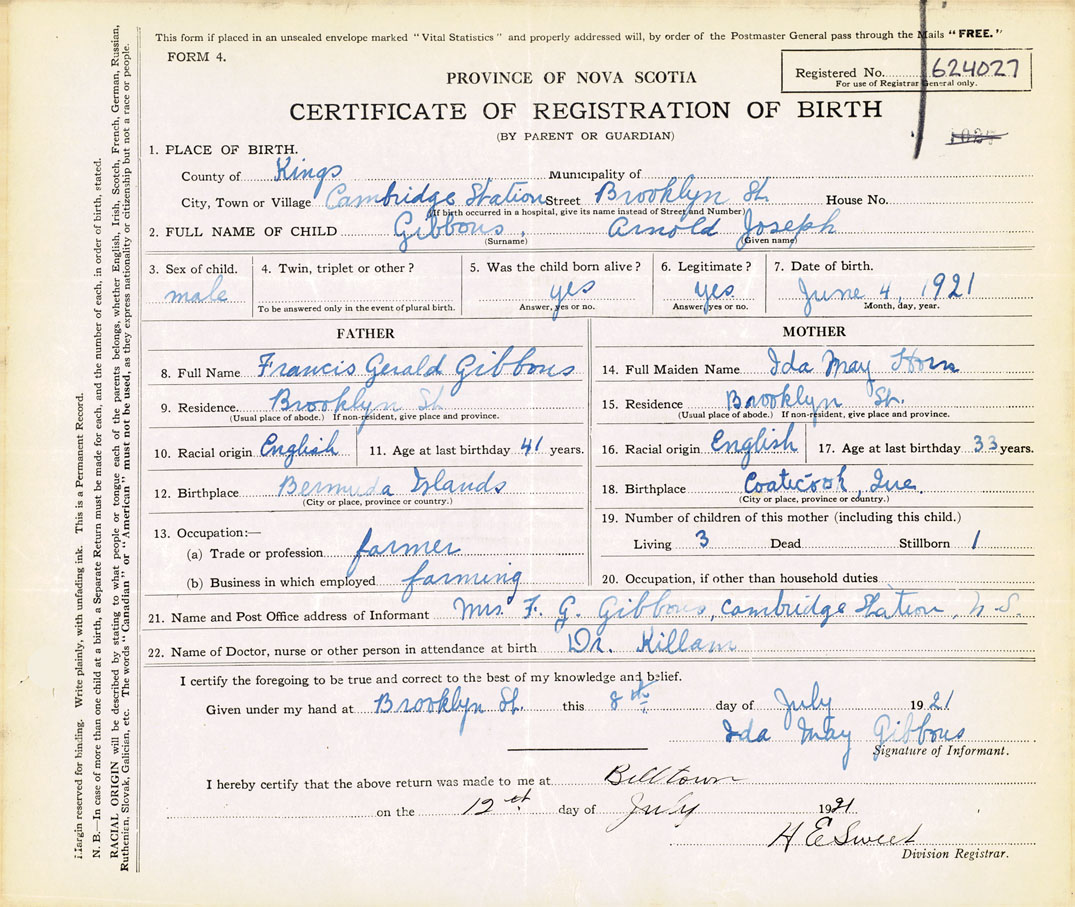 This form if placed in an unsealed envelope marked "Vital Statistics" and properly addressed will, by order of the Postmaster General pass through the Mails "FREE."
FORM 4.
Registered No. 624027
For use of Registrar General only.
PROVINCE OF NOVA SCOTIA
CERTIFICATE OF REGISTRATION OF BIRTH
(BY PARENT OR GUARDIAN)
1. PLACE OF BIRTH.
County of Kings Municipality of
City, Town or Village Cambridge Station Street Brooklyn St. House No.
(If birth occurred in a hospital, give its name instead of Street and Number)
2. FULL NAME OF CHILD Gibbons, Arnold Joseph
(Surname) (Given name)
3. Sex of child. 4. Twin, triplet or other? 5. Was the child born alive? 6. Legitimate? 7. Date of birth.
male yes yes. June 4, 1921
To be answered only in the event of plural birth. Answer, yes or no. Answer, yes or no. Month, day, year.
FATHER
8. Full Name Francis Gerald Gibbons
9. Residence. Brooklyn St.
(Usual place of abode.) If non-resident, give place and province.
10. Racial origin English 11. Age at last birthday 41 years.
12. Birthplace Bermuda Islands
(City or place, province or country.)
13. Occupation:—
(a) Trade or profession farmer
(b) Business in which employed farming
MOTHER
14. Full Maiden Name Ida May Horn
15. Residence Brooklyn St.
(Usual place of abode.) If non-resident, give place and province.
16. Racial origin English 17. Age at last birthday 33 years.
18. Birthplace Coaticook, Que.
(City or place, province or country.)
19. Number of children of this mother (including this child.)
Living 3 Dead Stillborn 1
20. Occupation, if other than household duties
21. Name and Post Office address of Informant Mrs. F. G. Gibbons, Cambridge Station, N.S.
22. Name of Doctor, nurse or other person in attendance at birth Dr. Killam
I certify the foregoing to be true and correct to the best of my knowledge and belief.
Given under my hand at Brooklyn St. this 8th day of July 1921
Ida May Gibbons
Signature of Informant.
I hereby certify that the above return was made to me at Billtown
on the 12th day of July 1921
H E Sweet
Division Registrar.
Margin reserved for binding. Write plainly, with unfading ink. This is a Permanent Record.
N. B.—In case of more than one child at a birth, a Separate Return must be made for each, and the number of each, in order of birth, stated.
RACIAL ORIGIN will be described by stating to what people or tongue each of the parents belongs, whether English, Irish, Scotch, French, German, Russian,
Ruthenian, Slovak, Galician, etc. The words "Canadian" or "American" must not be used, as they express nationality or citizenship but not a race or people.